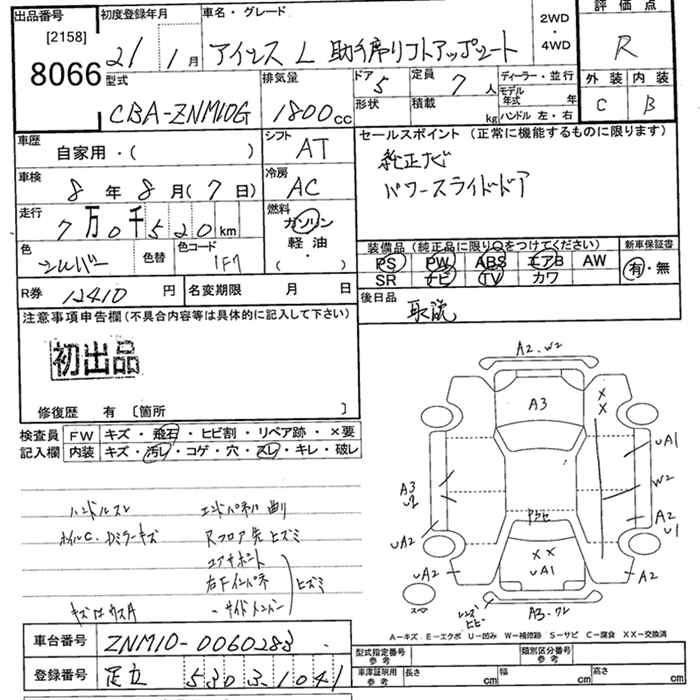 出品番号 初度登録年月 車名・グレード 2WD・4WD 評価点
[2158] 8066
21 1月 アイシス L 助手席リフトアップシート R
型式 排気量 ドア 5 定員 7人 ディーラー・並行 外装 内装
CBA-ZNM10G 1800cc 形状 積載 kg モデル年式 年 C B
ハンドル 左・右
車歴 自家用・( ) シフト AT セールスポイント(正常に機能するものに限ります)
純正ナビ
車検 8年8月(7日) 冷房 AC パワースライドドア
走行 7万0千520km 燃料 ガソリン
軽油
( ・ )
色 シルバー 色替 色コード 1F7
装備品(純正品に限り○をつけてください) 新車保証書
PS PW ABS エアB AW 有・無
SR ナビ TV カワ
R券 12410円 名変期限 月 日 後日品 取説
注意事項申告欄(不具合内容等は具体的に記入して下さい)
初出品
修復歴 有 〔箇所 〕
検査員 FW キズ・飛石・ヒビ割・リペア跡・×要
記入欄 内装 キズ・汚レ・コゲ・穴・スレ・キレ・破レ
ハンドルスレ エンドパネル曲り
ホイルC.Dミラーキズ Rフロア先ヒズミ
コアサポート
右Fインパネ ヒズミ
サイドメンバー
A2.W2
A3
XX
UA1
A3
U2
W2
A2
U1
UA2
XX
UA1
UA2
A2
レンズヒビ
A3.W2
A-キズ E-エクボ U-凹み W-補修跡 S-サビ C-腐食 XX-交換済
車台番号 ZNM10-0060283
登録番号 足立 530 ヨ 1041
型式指定番号 参考 類別区分番号 参考
車庫証明用 参考 長さ cm 幅 cm 高さ cm